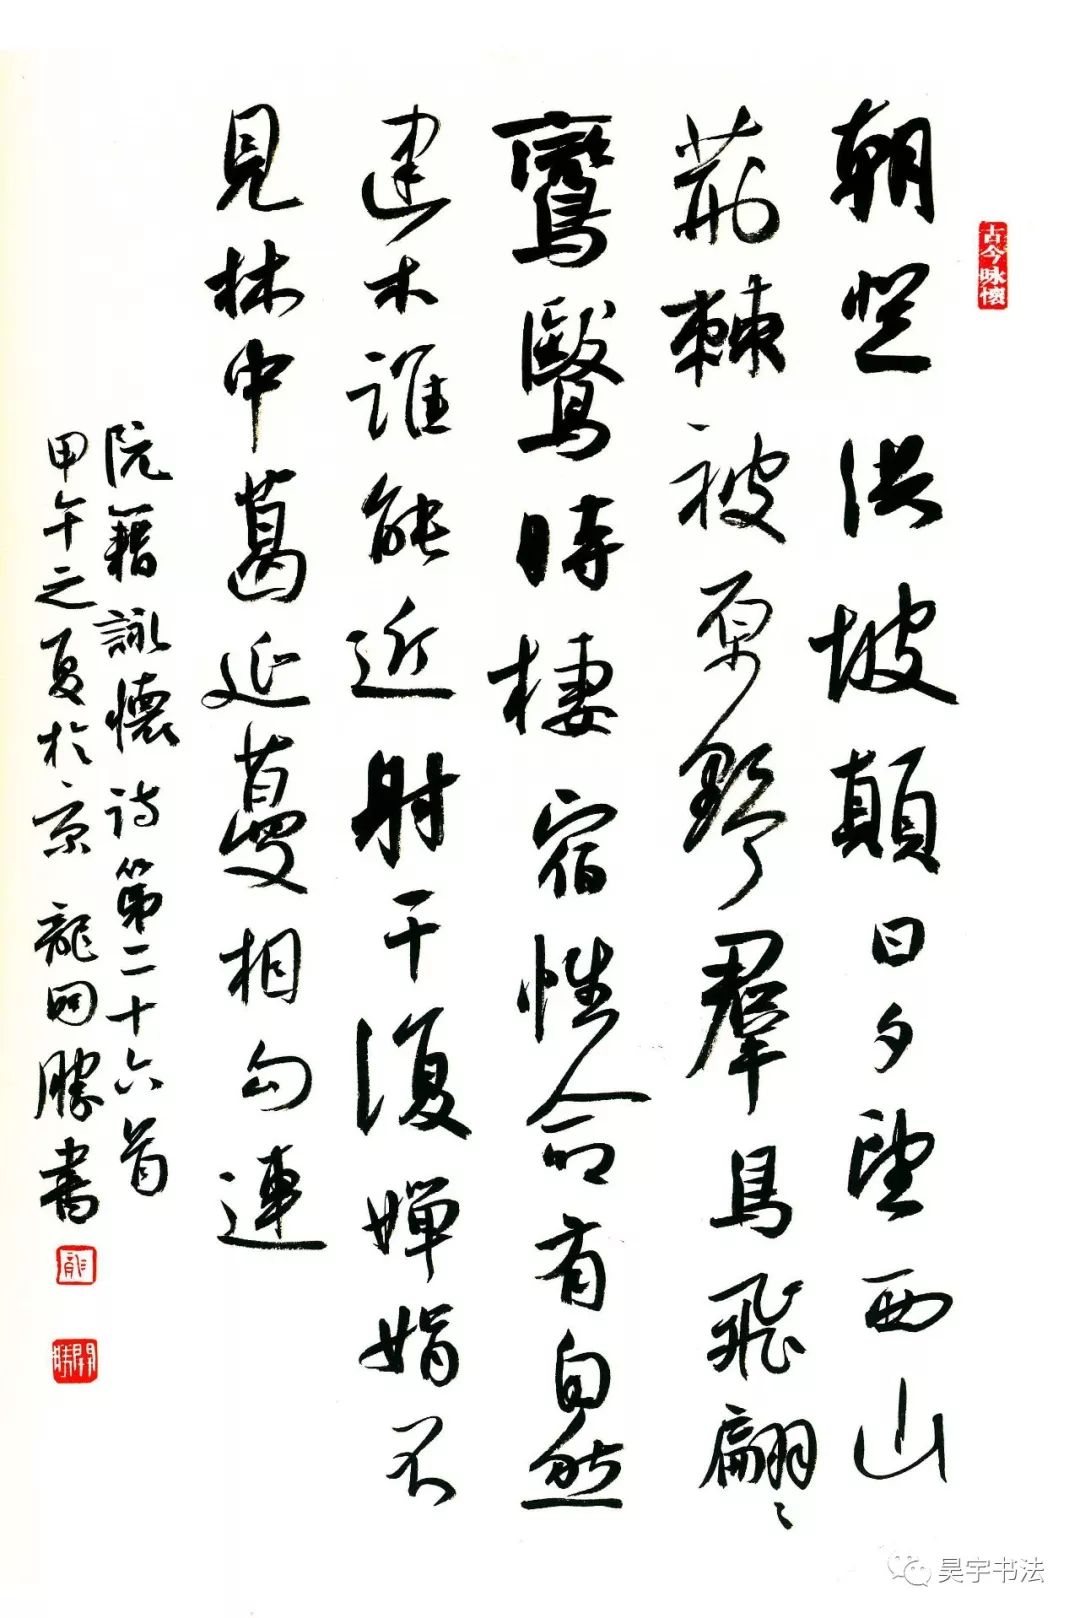 古今咏懷
朝登洪坡顛日夕望西山
荊棘被原野羣鳥飛翩〻
鸞鷖時棲宿性命有自然
建木誰能近射干復嬋娟不
見林中葛延蔓相勾連
阮籍詠懷诗第二十六首
甲午之夏於京 龍開勝書
龍
開勝
昊宇书法